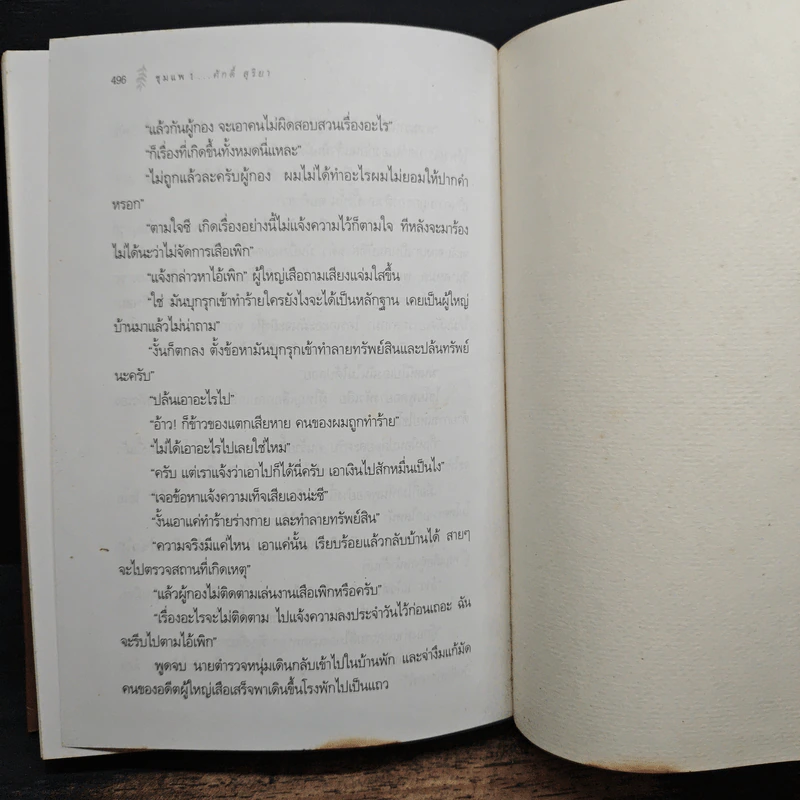 496 ชุมแพ 1...ศักดิ์ สุริยา
“แล้วกันผู้กอง จะเอาคนไม่ผิดสอบสวนเรื่องอะไร”
“ก็เรื่องที่เกิดขึ้นทั้งหมดนี่แหละ”
“ไม่ถูกแล้วละครับผู้กอง ผมไม่ได้ทำอะไรผมไม่ยอมให้ปากคำ
หรอก”
“ตามใจซี เกิดเรื่องอย่างนี้ไม่แจ้งความไว้ก็ตามใจ ทีหลังจะมาร้อง
ไม่ได้นะว่าไม่จัดการเสือเพิก”
“แจ้งกล่าวหาไอ้เพิก” ผู้ใหญ่เสือถามเสียงแจ่มใสขึ้น
“ใช่ มันบุกรุกเข้าทำร้ายใครยังไงจะได้เป็นหลักฐาน เคยเป็นผู้ใหญ่
บ้านมาแล้วไม่น่าถาม”
“งั้นก็ตกลง ตั้งข้อหามันบุกรุกเข้าทำลายทรัพย์สินและปล้นทรัพย์
นะครับ”
“ปล้นเอาอะไรไป”
“อ้าว! ก็ข้าวของแตกเสียหาย คนของผมถูกทำร้าย”
“ไม่ได้เอาอะไรไปเลยใช่ไหม”
“ครับ แต่เราแจ้งว่าเอาไปก็ได้นี่ครับ เอาเงินไปสักหมื่นเป็นไง”
“เจอข้อหาแจ้งความเท็จเสียเองน่ะซี”
“งั้นเอาแค่ทำร้ายร่างกาย และทำลายทรัพย์สิน”
“ความจริงมีแค่ไหน เอาแค่นั้น เรียบร้อยแล้วกลับบ้านได้ สายๆ
จะไปตรวจสถานที่เกิดเหตุ”
“แล้วผู้กองไม่ติดตามเล่นงานเสือเพิกหรือครับ”
“เรื่องอะไรจะไม่ติดตาม ไปแจ้งความลงประจำวันไว้ก่อนเถอะ ฉัน
จะรีบไปตามไอ้เพิก”
พูดจบ นายตำรวจหนุ่มเดินกลับเข้าไปในบ้านพัก และจ่างึมแก้มัด
คนของอดีตผู้ใหญ่เสือเสร็จพาเดินขึ้นโรงพักไปเป็นแถว